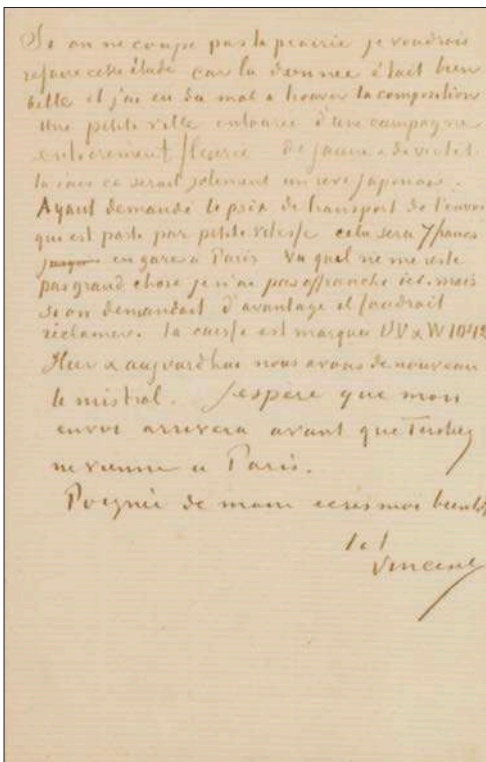 Si on ne coupe pas la prairie je voudrais
refaire cette étude car la donnée était bien
belle et j'ai eu du mal a trouver la composition
Une petite ville entourée d'une campagne
entierement fleurie de jaune & de violet.
tu sais ce serait joliment un reve japonais.
Ayant demandé le prix de transport de l'envoi
qui est parti par petite vitesse cela sera 7 francs
en gare à Paris Vu qu'il ne me reste
pas grand chose je n'ai pas affranchi ici. mais
si on demandait d'avantage il faudrait
réclamer. la caisse est marquée UV & W 1042
Hier & aujourd'hui nous avons de nouveau
le mistral. J'espère que mon
envoi arrivera avant que Tersteeg
ne vienne a Paris.
Poignée de main ecris moi bientôt
t. à t.
Vincent